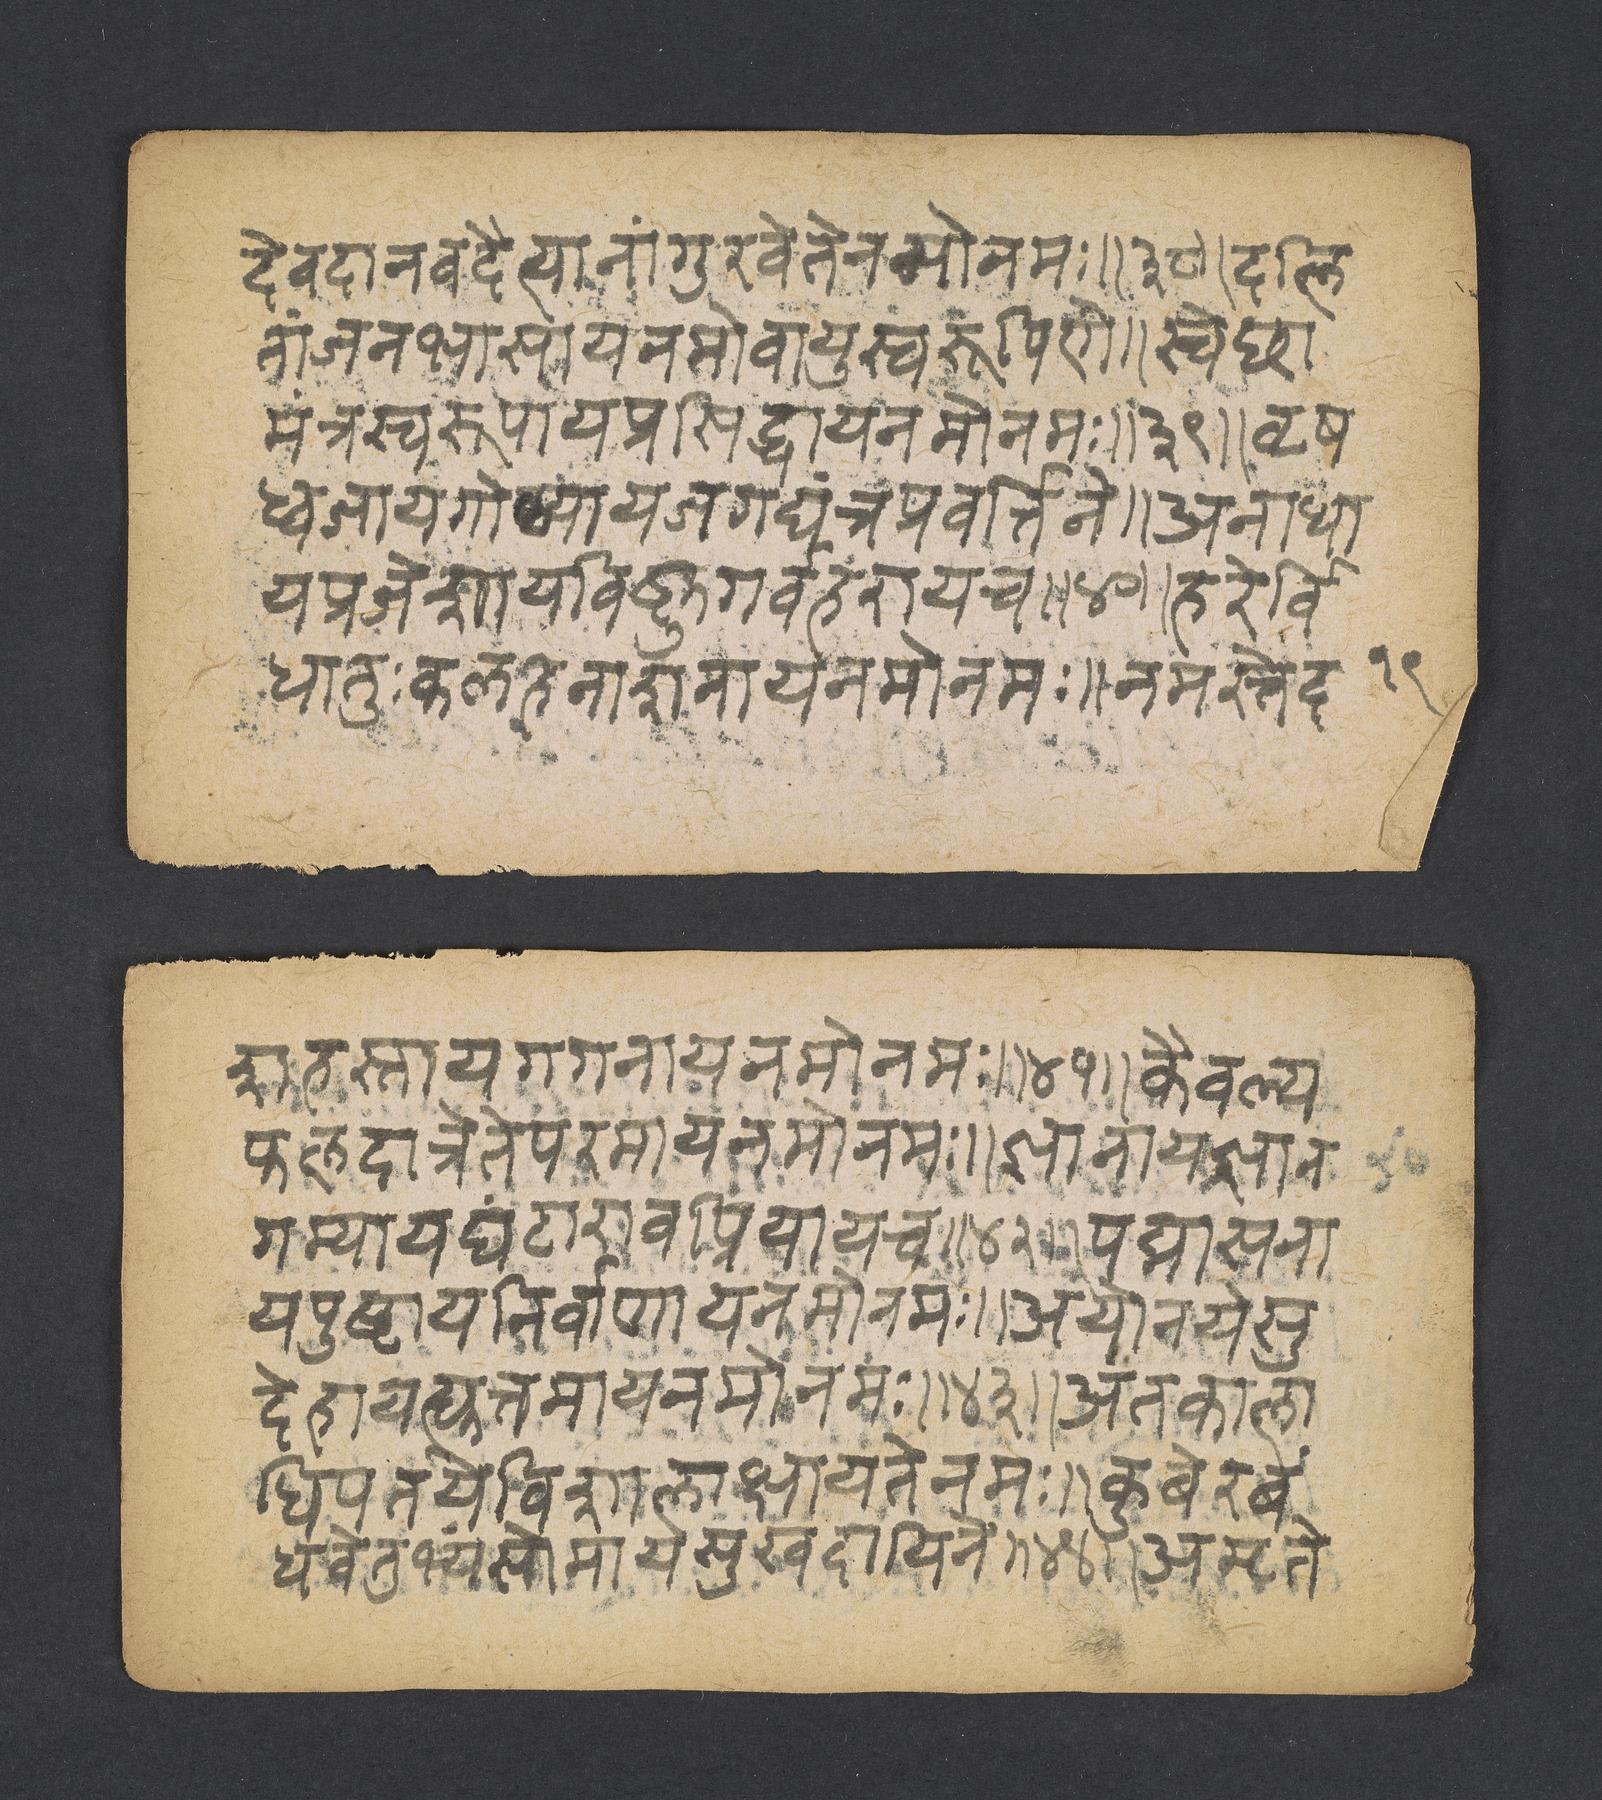 देवदानवदैत्यानांगुरवेतेनमोनमः॥३८॥दलि
तांजनभासायनमोवायुस्वरूपिणे॥स्वेछा
मंत्रस्वरूपायप्रसिद्धायनमोनमः॥३९॥वृष
ध्वजायगोष्यायजगद्यंत्रप्रवर्त्तिने॥अनाथा
यप्रजेशायविष्णुगर्वहरायच॥४०॥हरेर्वि
धातुःकलहनाशनायनमोनमः॥नमस्तेद
१९
शहस्तायगगनायनमोनमः॥४१॥कैवल्य
फलदात्रेतेपरमायनमोनमः॥ज्ञानायज्ञान
गम्यायघंटारावप्रियायच॥४२॥पद्मासना
यपुष्टायनिर्वाणायनमोनमः॥अयोनयेसु
देहायह्युत्तमायनमोनमः॥४३॥अंतकाला
धिपतयेविशालाक्षायतेनमः॥कुबेरबं
धवेतुभ्यंसोमायसुखदायिने॥४४॥अमृते